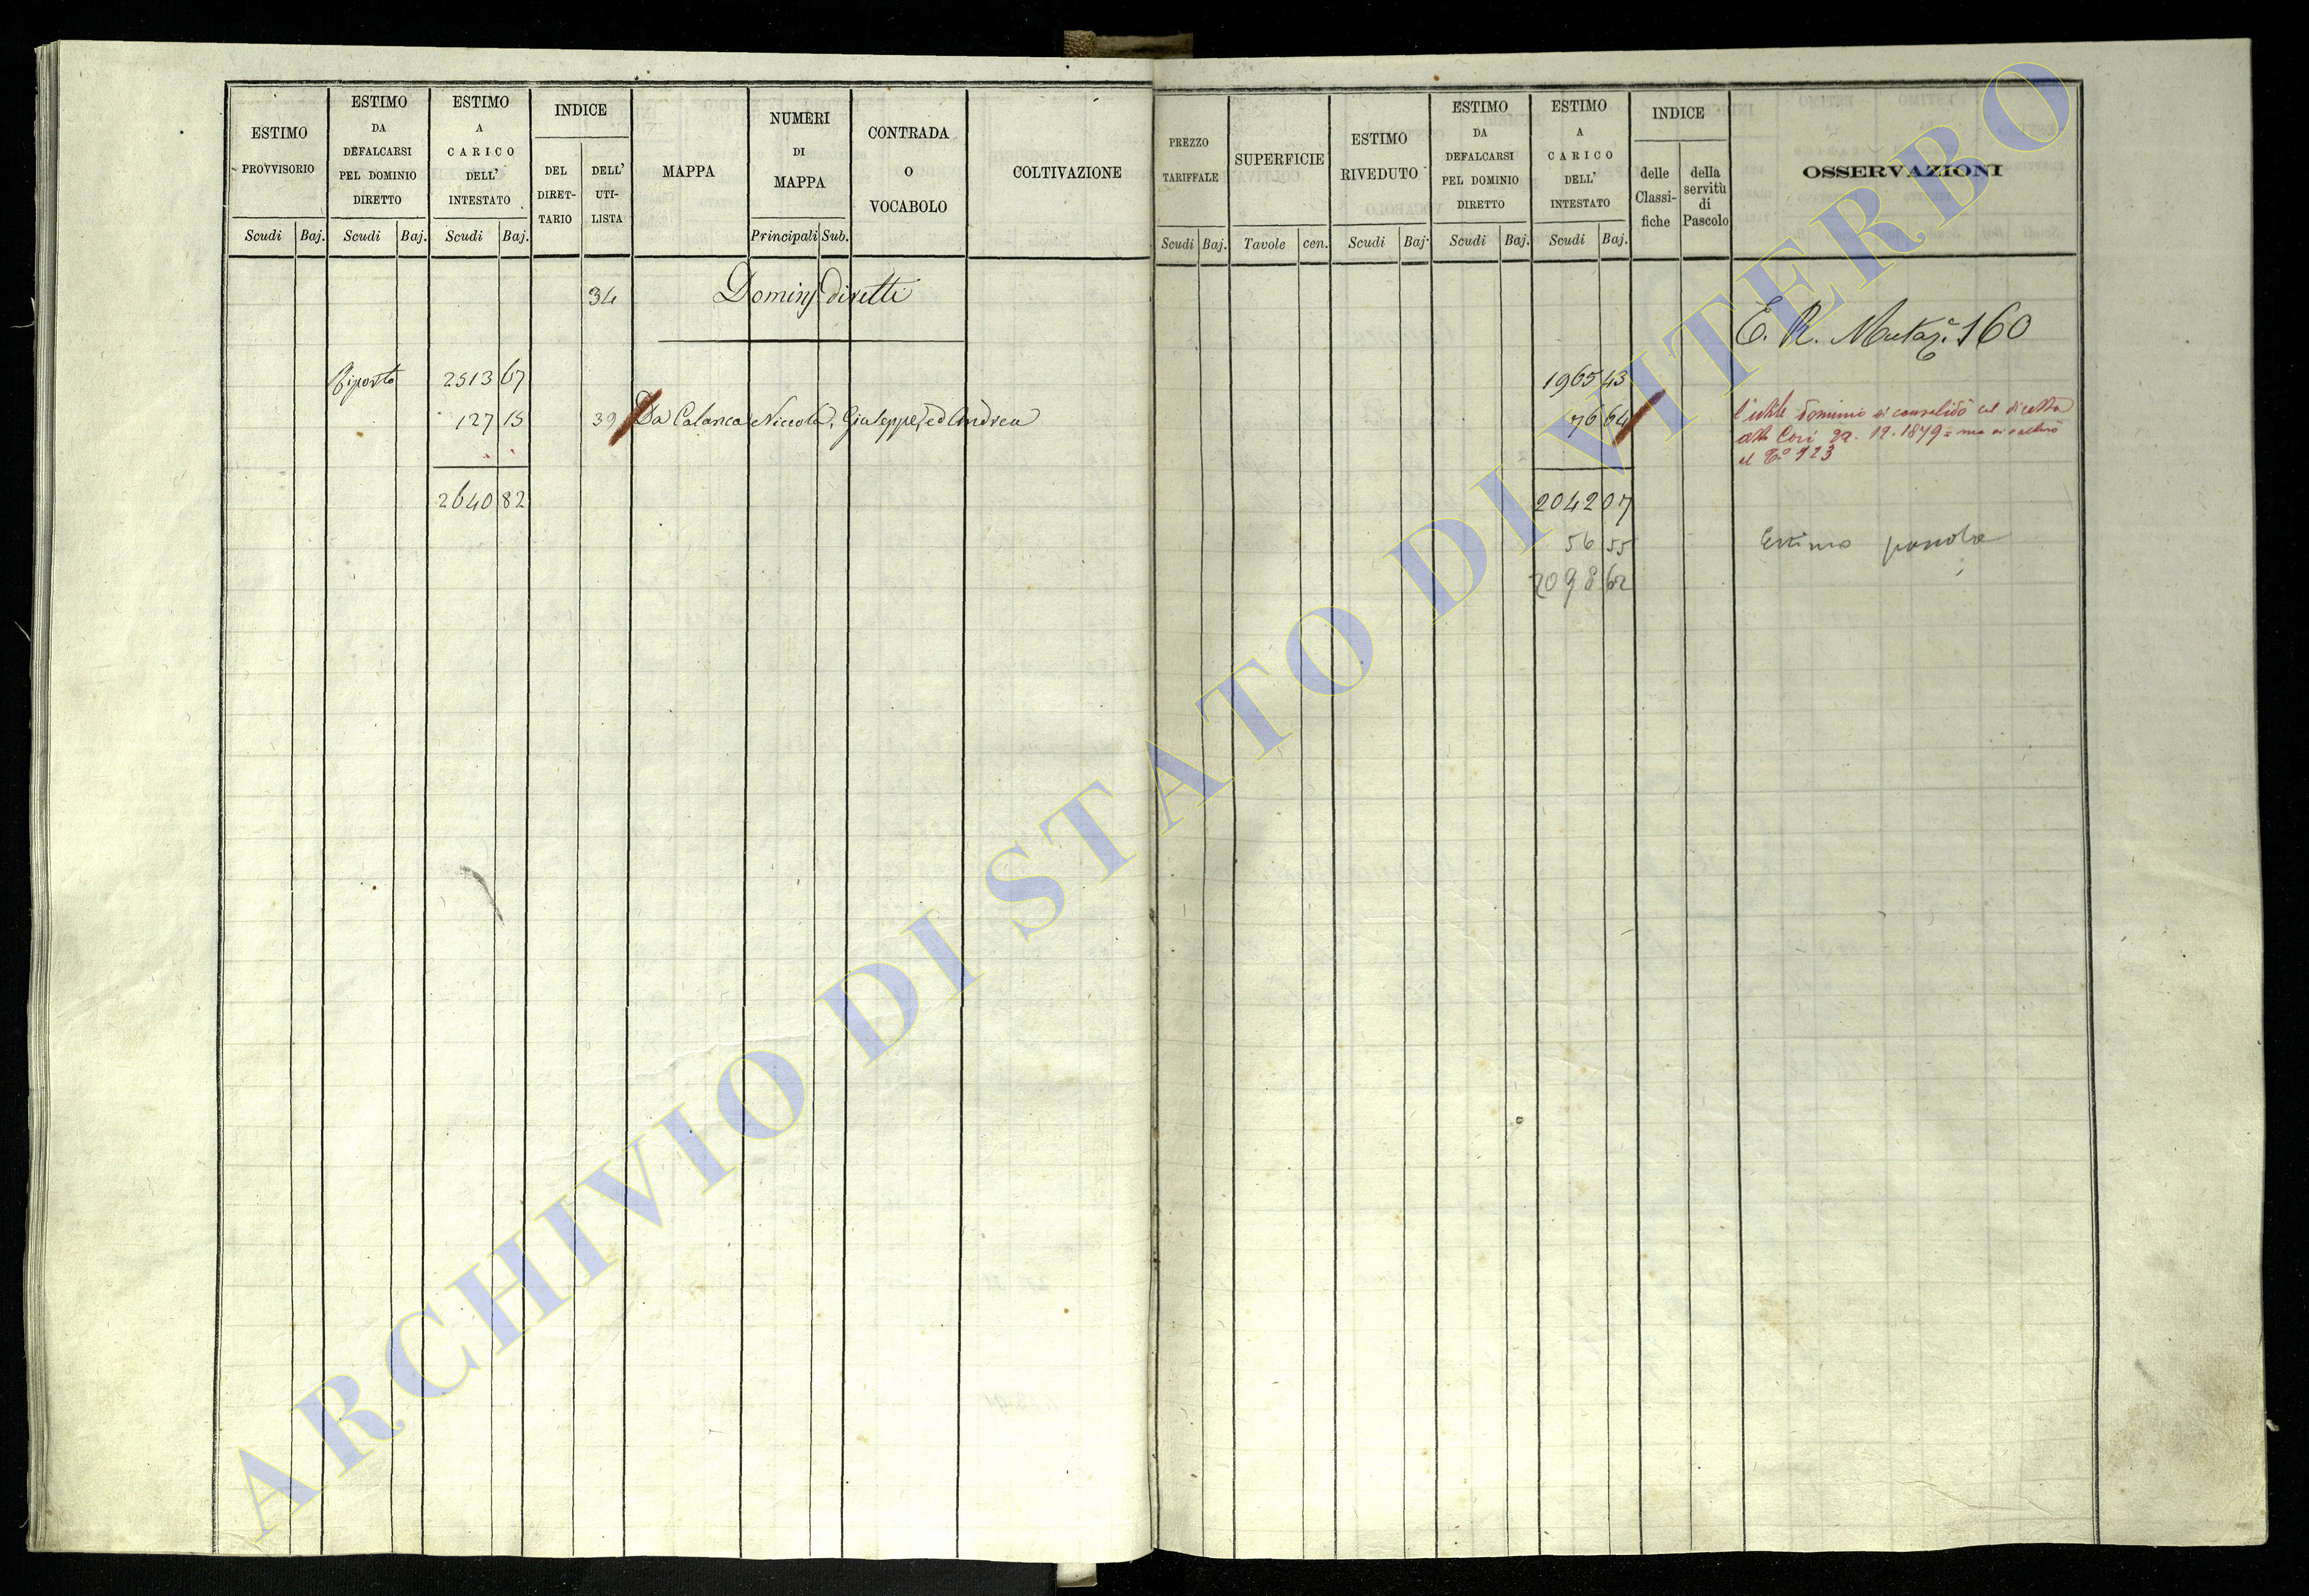 ESTIMO
PROVVISORIO
Scudi Baj.
ESTIMO
DA
DEFALCARSI
PEL DOMINIO
DIRETTO
Scudi Baj.
ESTIMO
A
CARICO
DELL'
INTESTATO
Scudi Baj.
INDICE
DEL
DIRET-
TARIO
DELL'
UTI-
LISTA
MAPPA
NUMERI
DI
MAPPA
Principali Sub.
CONTRADA
O
VOCABOLO
COLTIVAZIONE
34 Dominj diretti
Riporto 2513 67
127 15 39 Da Calanca Niccola, Giuseppe, ed Andrea
2640 82
PREZZO
TARIFFALE
Scudi Baj.
SUPERFICIE
Tavole cen.
ESTIMO
RIVEDUTO
Scudi Baj.
ESTIMO
DA
DEFALCARSI
PEL DOMINIO
DIRETTO
Scudi Baj.
ESTIMO
A
CARICO
DELL'
INTESTATO
Scudi Baj.
INDICE
delle
Classi-
fiche
della
servitù
di
Pascolo
OSSERVAZIONI
E. R. Mutaz.e 160
1965 43
76 64 l'utile dominio si consolidò col diretto
Cori 29. 12. 1879 = ma si
al 923
2042 07
56 55 Estimo
2098 62
ARCHIVIO DI STATO DI VITERBO